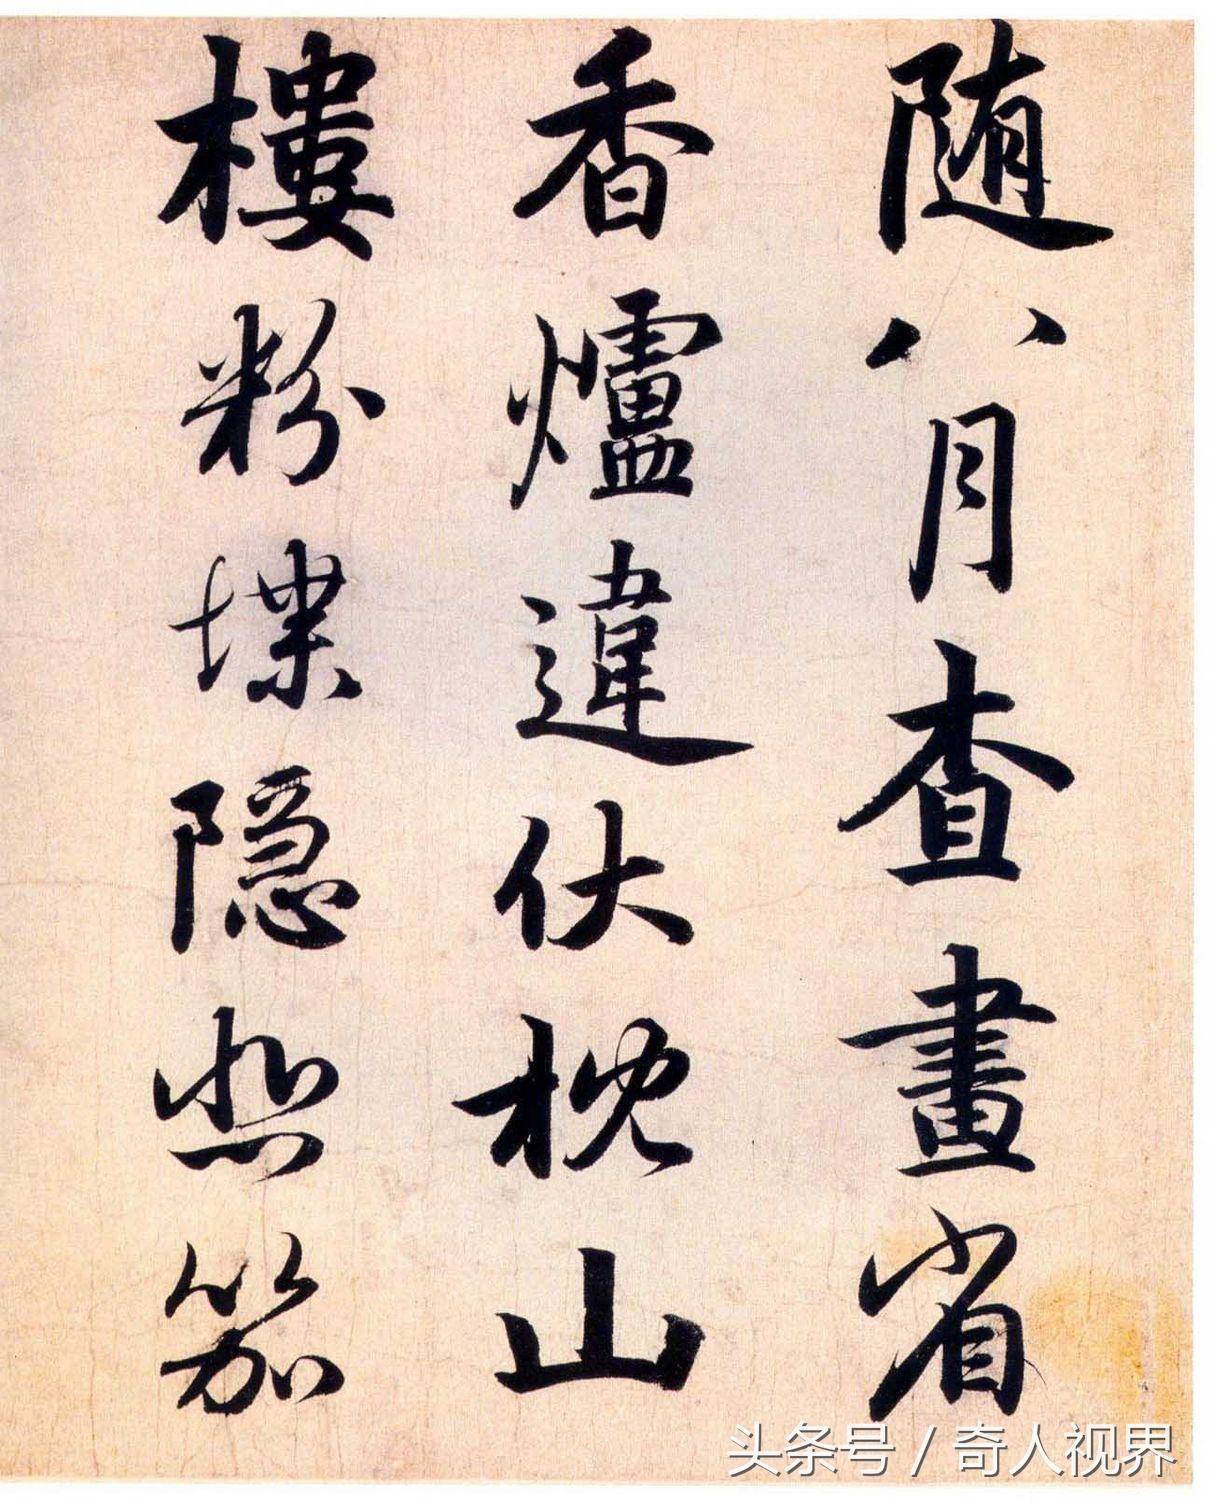 随八月查畫省
香爐違伏枕山
樓粉堞隠悲笳
头条号 / 奇人视界